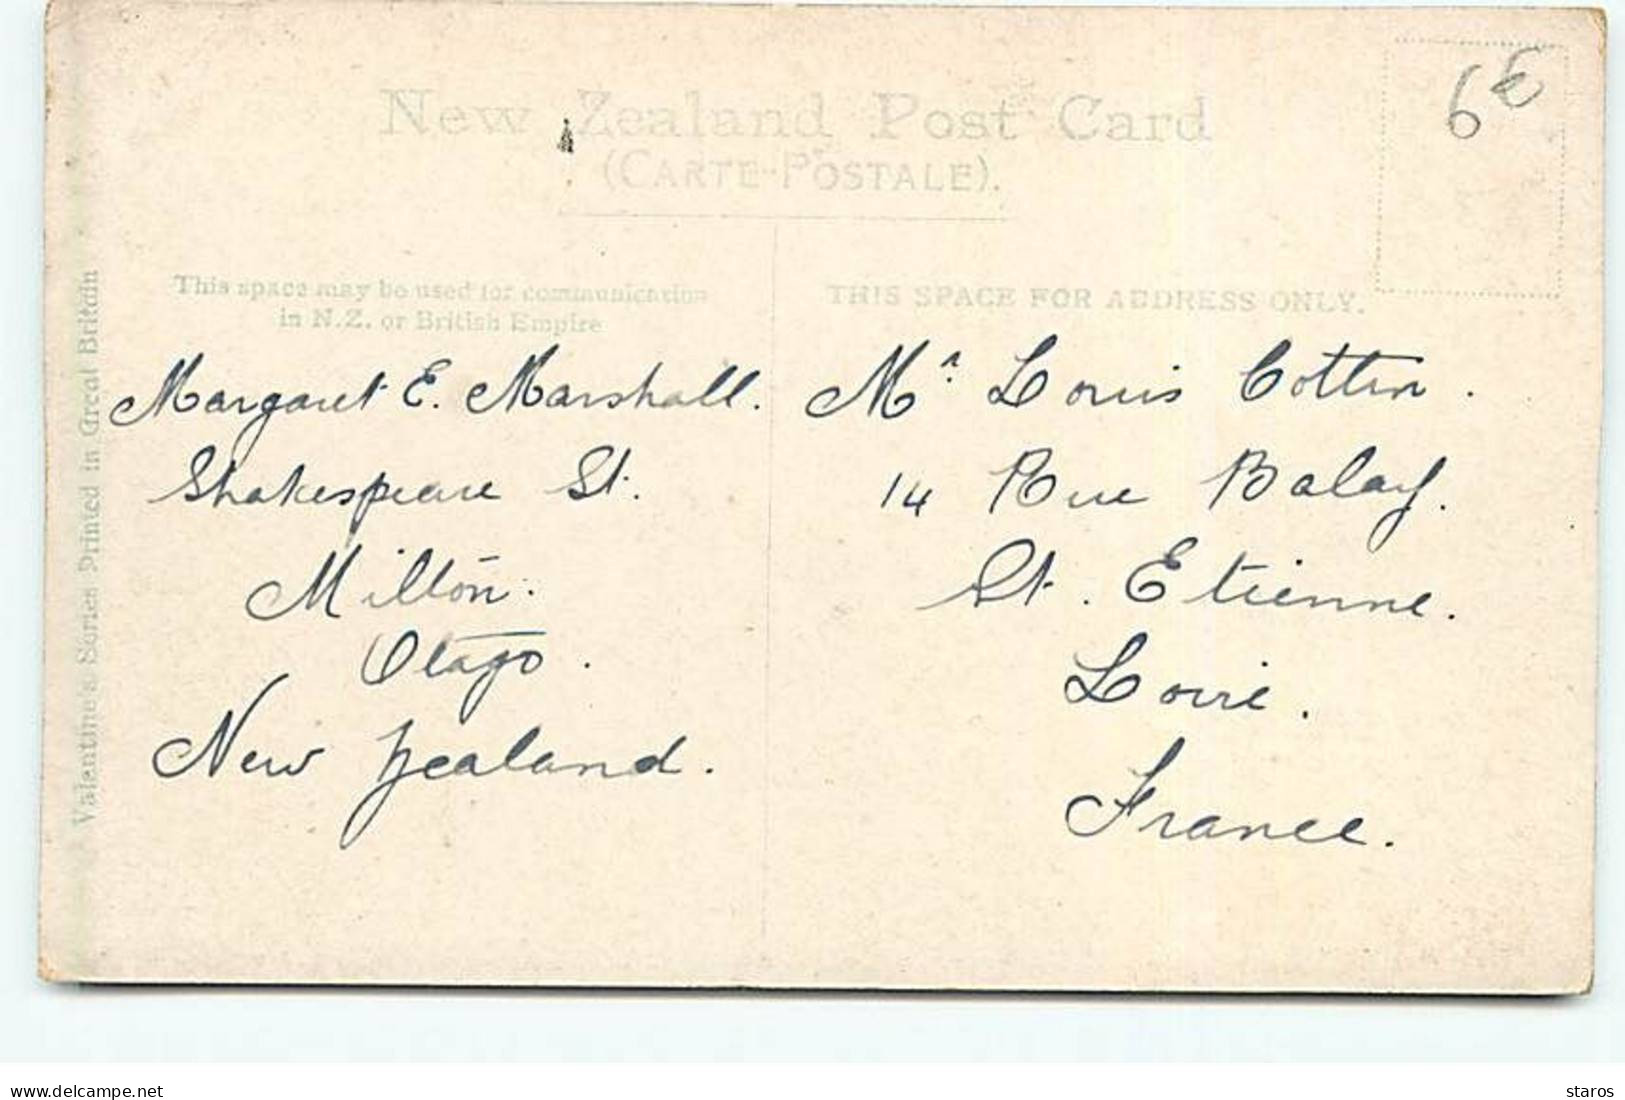 New Zealand Post Card
(CARTE-POSTALE).
6€
This space may be used for communication
in N.Z. or British Empire
THIS SPACE FOR ADDRESS ONLY.
Valentine's Series Printed in Great Britain
Margaret E. Marshall.
Shakespeare St.
Milton.
Otago.
New Zealand.
Mr. Louis Cottin.
14 Rue Balay.
St. Etienne.
Loire.
France.
www.delcampe.net
staros